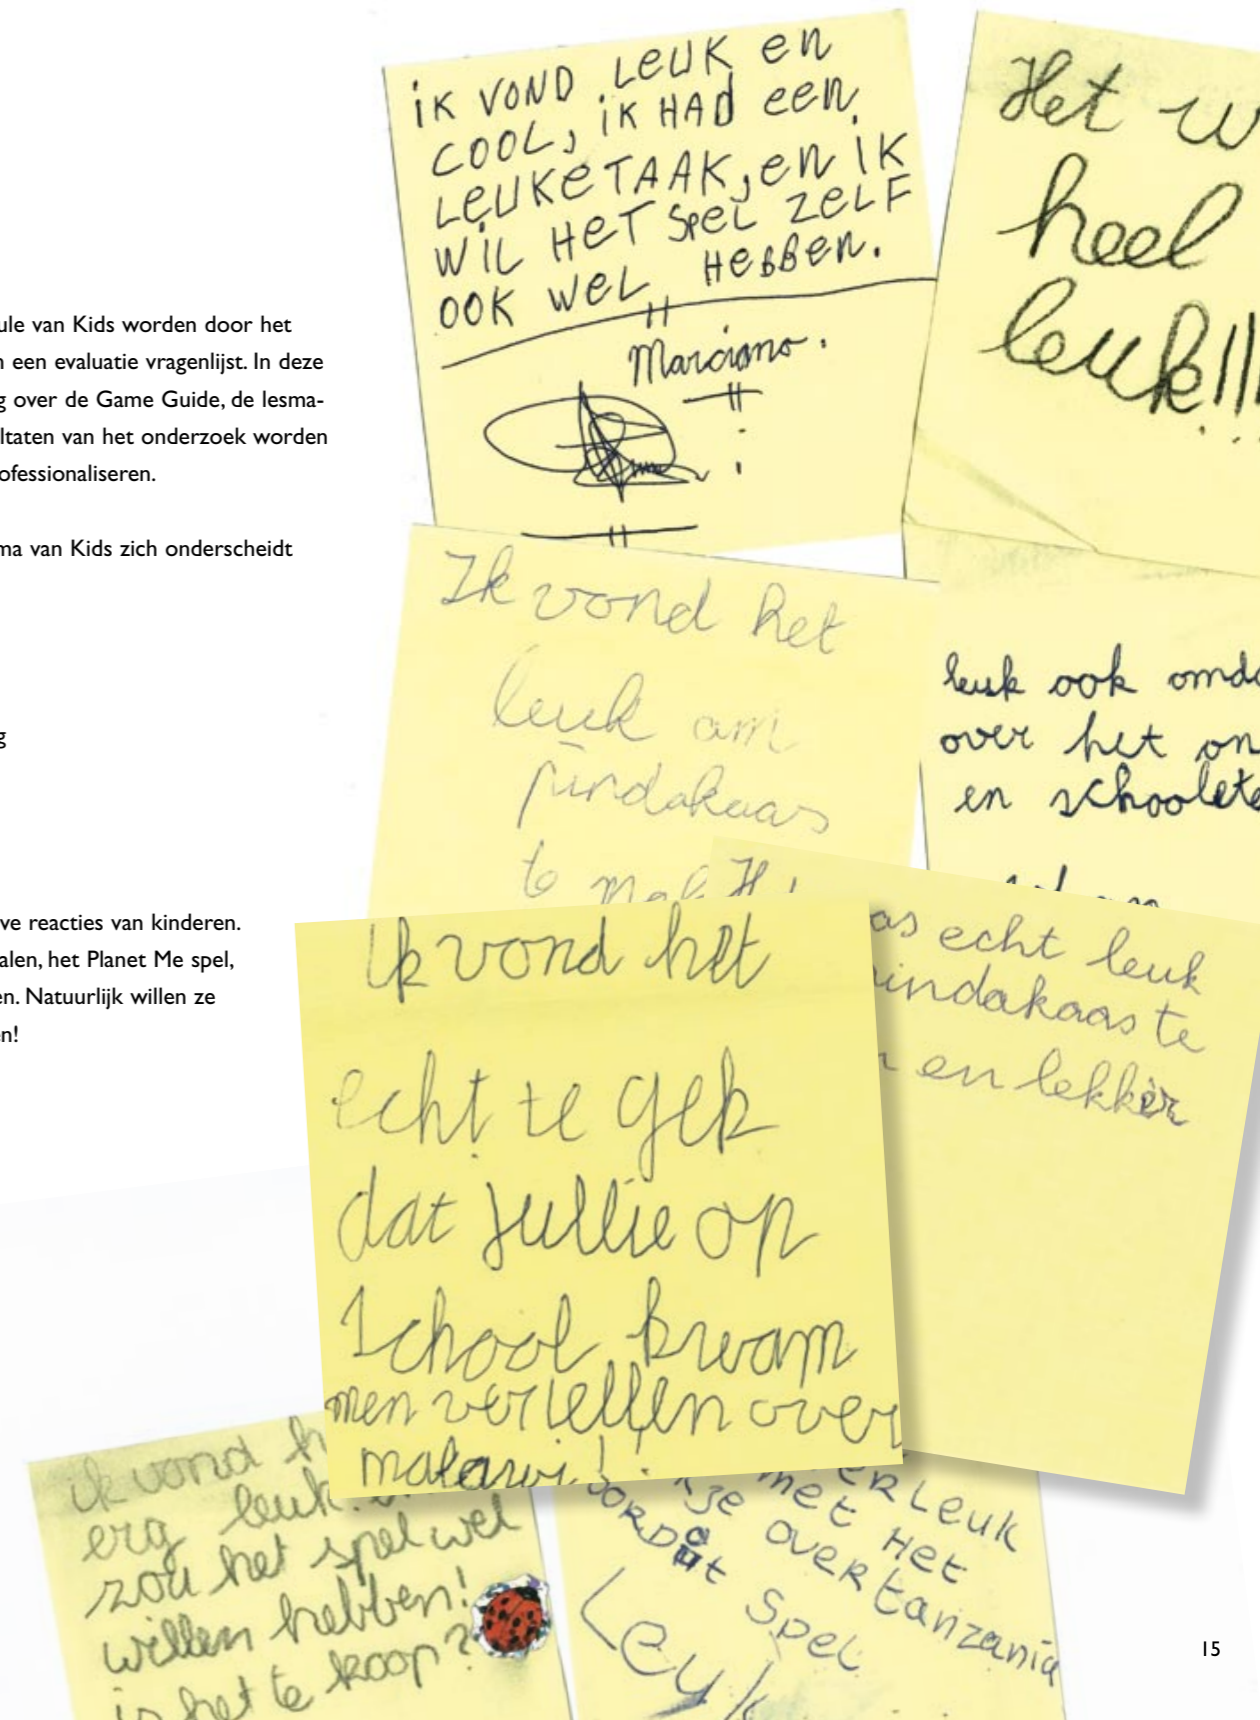 ule van Kids worden door het
n een evaluatie vragenlijst. In deze
g over de Game Guide, de lesma-
ltaten van het onderzoek worden
ofessionaliseren.
ma van Kids zich onderscheidt
g
ve reacties van kinderen.
alen, het Planet Me spel,
en. Natuurlijk willen ze
en!
iK VOND LEUK en
COOL, iK HAD een
LEUKE TAAK, en iK
WIL HET SPEL ZELF
OOK WEL HEBBEN.
Marciano.
Het w
heel
leuk!!!
Ik vond het
leuk om
pindakaas
te mak
leuk ook omda
over het on
en schoolete
H
as echt leuk
indakaas te
en lekker
Ik vond het
echt te gek
dat jullie op
School kwam
men vertellen over
malawi!!
ik vond h
erg leuk.
zou het spel wel
willen hebben!
is het te koop?
ER LEUK
MET HET
je OVER tanzania
ORDat Spel
Leuk
15